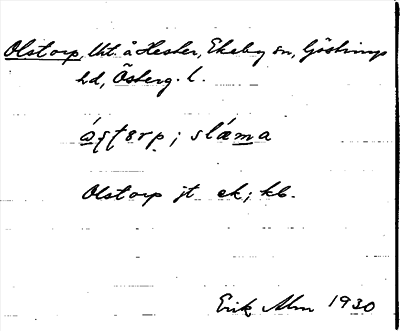 Olstorp, Uht. å Hester, Ekeby sn, Göstrings
hd, Österg. l.
ástorp; slǽma
Olstorp jt ek; kb.
Erik Alm 1930